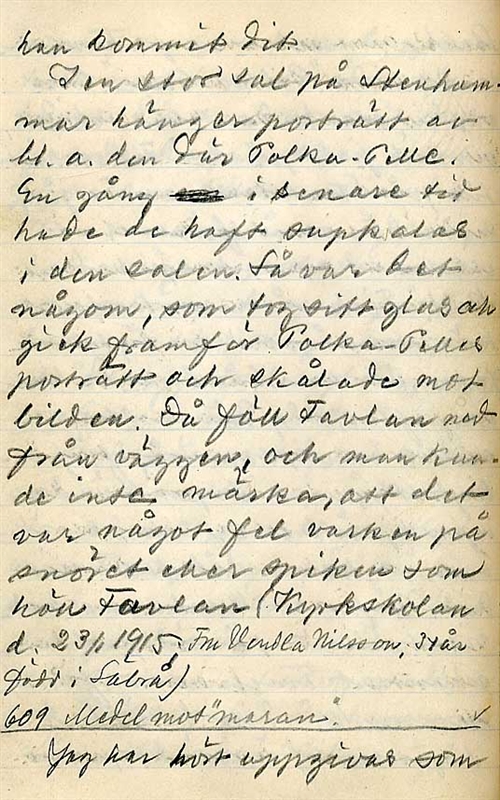 han kommit dit.
I en stor sal på Stenham-
mar hänger porträtt av
bl. a. den där Polka-Pelle.
En gång i senare tid
hade de haft supkalas
i den salen. Så var det
någom, som tog sitt glas och
gick framför Polka-Pelles
porträtt och skålade mot
bilden. Då föll tavlan ned
från väggen, och man kun-
de inte märka, att det
var något fel varken på
snöret eller spiken som
höll tavlan (Kyrkskolan
d. 23/1 1915, Fru Vendla Nilsson, år
född i Säbrå)
609 Medel mot "maran".
Jag har hört uppgivas som